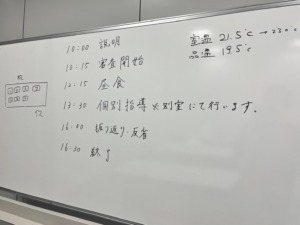 10:00 説明
10:15 審査開始
12:15 昼食
13:30 個別指導 ※別室にて行います。
16:00 振り返り・反省
16:30 終了
室温 21.5℃ → 22.0℃
品温 19.5℃